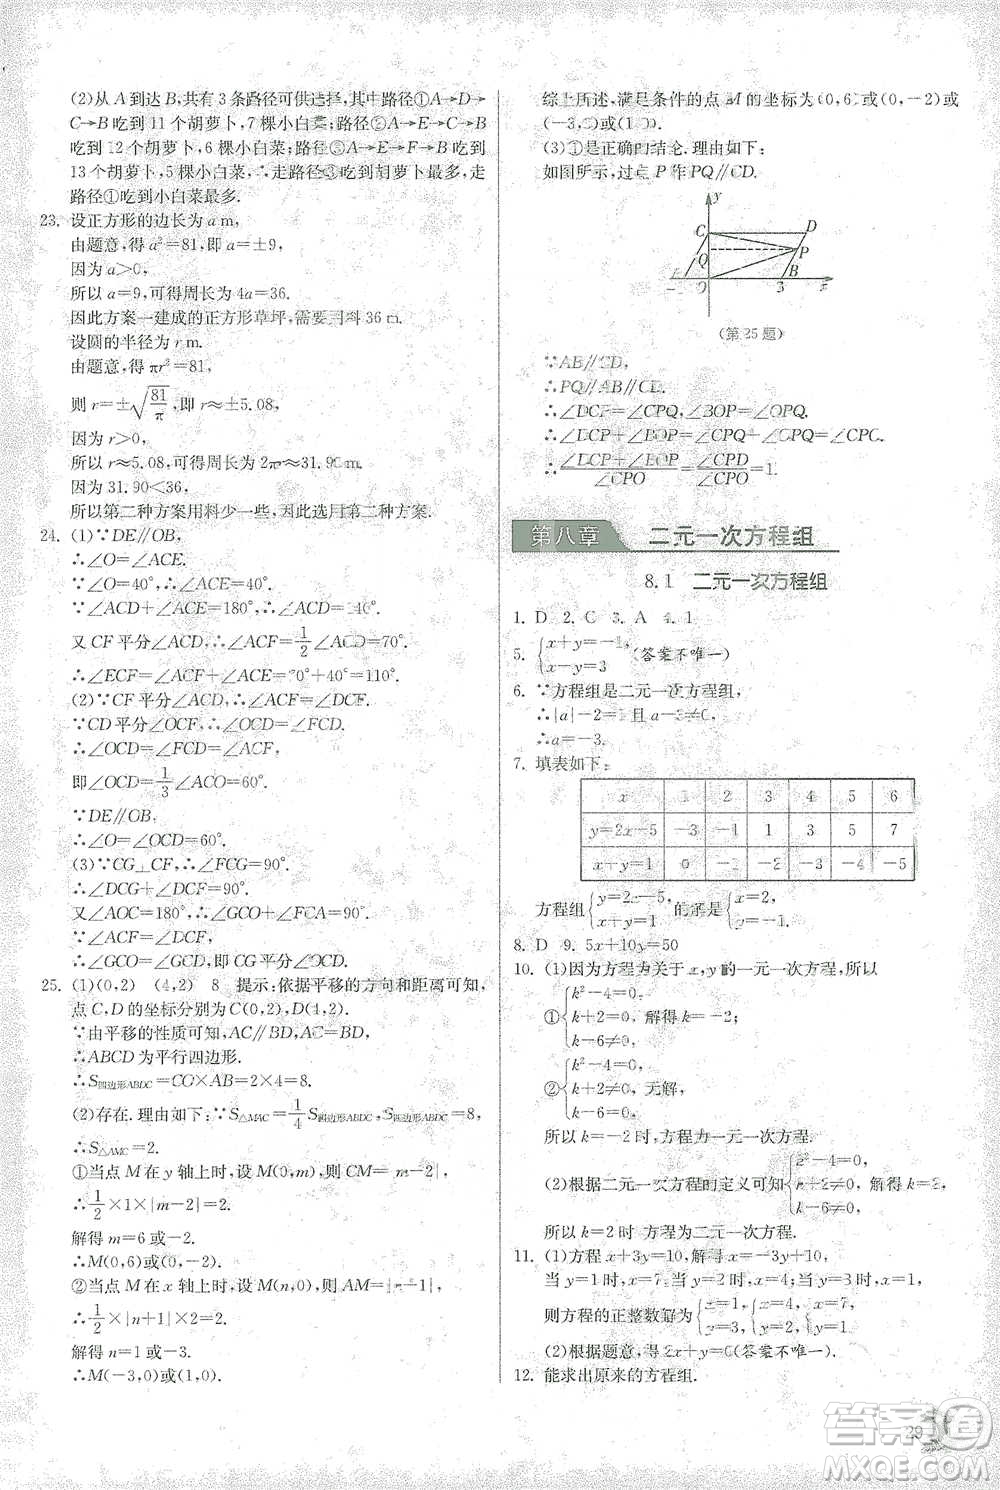 (2)从 A 到达 B,共有 3 条路径可供选择,其中路径①A→D→
C→B 吃到 11 个胡萝卜,7 棵小白菜;路径②A→F→C→B
吃到 12 个胡萝卜,6 棵小白菜;路径③A→E→F→B 吃到
13 个胡萝卜,5 棵小白菜,∴走路径③吃到胡萝卜最多,走
路径①吃到小白菜最多.
23. 设正方形的边长为 a m,
由题意,得 a²=81,即 a=±9,
因为 a>0,
所以 a=9,可得周长为 4a=36.
因此方案一建成的正方形草坪,需要用料 36 m.
设圆的半径为 r m.
由题意,得 πr²=81,
则 r=±√(81/π),即 r≈±5.08,
因为 r>0,
所以 r≈5.08,可得周长为 2πr≈31.90 m.
因为 31.90<36,
所以第二种方案用料少一些,因此选用第二种方案.
24. (1)∵DE∥OB,
∴∠O=∠ACE.
∵∠O=40°,∴∠ACE=40°.
∵∠ACD+∠ACE=180°,∴∠ACD=140°.
又 CF 平分∠ACD,∴∠ACF=1/2∠ACD=70°.
∴∠ECF=∠ACE+∠ACF=70°+40°=110°.
(2)∵CF 平分∠ACD,∴∠ACF=∠DCF.
∵CD 平分∠OCF,∴∠OCD=∠DCF.
∴∠OCD=∠DCF=∠ACF,
即∠OCD=1/3∠ACO=60°.
∵DE∥OB,
∴∠O=∠OCD=60°.
(3)∵CG⊥CF,∴∠FCG=90°.
∴∠DCG+∠DCF=90°.
又∠AOC=180°,∴∠GCO+∠FCA=90°.
∵∠ACF=∠DCF,
∴∠GCO=∠GCD,即 CG 平分∠OCD.
25. (1)(0,2) (4,2) 8 提示:依据平移的方向和距离可知,
点 C,D 的坐标分别为 C(0,2),D(4,2).
∵由平移的性质可知,AC∥BD,AB∥CD,
∴ABCD 为平行四边形.
∴S四边形ABDC=CO×AB=2×4=8.
(2)存在.理由如下:∵S△MAC=1/4S四边形ABDC,S四边形ABDC=8,
∴S△AMC=2.
①当点 M 在 y 轴上时,设 M(0,m),则 CM=|m-2|,
∴1/2×1×|m-2|=2.
解得 m=6 或-2.
∴M(0,6)或(0,-2).
②当点 M 在 x 轴上时,设 M(n,0),则 AM=|n+1|,
∴1/2×|n+1|×2=2.
解得 n=1 或-3.
∴M(-3,0)或(1,0).
综上所述,满足条件的点 M 的坐标为(0,6)或(0,-2)或
(-3,0)或(1,0).
(3)①是正确的结论.理由如下:
如图所示,过点 P 作 PQ∥CD.
y
C D
Q P
O 3 B x
(第 25 题)
∵AB∥CD,
∴PQ∥AB∥CD.
∴∠DCP=∠CPQ,∠BOP=∠OPQ.
∴∠DCP+∠BOP=∠CPQ+∠OPQ=∠CPO.
∴(∠DCP+∠BOP)/∠CPO=∠CPO/∠CPO=1.
第八章 二元一次方程组
8.1 二元一次方程组
1. D 2. C 3. A 4. 1
5. {x+y=-1, x-y=3 (答案不唯一)
6. ∵方程组是二元一次方程组,
∴|a|-2=1 且 a-3≠0,
∴a=-3.
7. 填表如下:
x 1 2 3 4 5 6
y=2x-5 -3 -1 1 3 5 7
x+y=1 0 -1 -2 -3 -4 -5
方程组{y=2x-5, x+y=1 的解是{x=2, y=-1.
8. D 9. 5x+10y=50
10. (1)因为方程为关于 x,y 的一元一次方程,所以
①{k²-4=0, k+2=0, k-6≠0, 解得 k=-2;
②{k²-4=0, k+2≠0, k-6=0, 无解,
所以 k=-2 时,方程为一元一次方程.
(2)根据二元一次方程的定义可知{k²-4=0, k+2≠0, k-6≠0, 解得 k=2,
所以 k=2 时 方程为二元一次方程.
11. (1)方程 x+3y=10,解得 x=-3y+10,
当 y=1 时,x=7;当 y=2 时,x=4;当 y=3 时,x=1,
则方程的正整数解为{x=1, y=3, {x=4, y=2, {x=7, y=1.
(2)根据题意,得 2x+y=0(答案不唯一).
12. 能求出原来的方程组.
29
答案圈
MXQE.COM